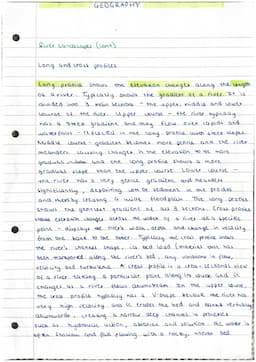 GEOGRAPHY
River Landscapes (cont)
Long and cross profiles
Long profile shows the elevation changes along the length
of a river. Typically shows the gradient of a river. It is
divided into 3 main sections - the upper, middle and lower
course of the river. Upper course - the river typically
has a steep gradient and may flow over rapids and
waterfalls - reflected in the long profile with steep slopes.
Middle course - gradient becomes more gentle and the river
meanders causing changes in the elevation to be more
gradual and the long profile shows a more
gradual slope than the upper course. Lower course -
the river has a very gentle gradient and meanders
significantly, depositing
and thereby creating a wide floodplain. The long profile
shows the gradient of all 3 sections. Cross profile
shows elevation changes across the width of a river at a specific
point - displays the river's width, depth and change in
from one bank to the other. Typically the cross profile shows
the river's channel shape, its bed load (material that has
been transported along the river's bed, any variations in flow,
velocity and turbulence. A cross profile is a cross-sectional view
of a river taken at particular points along its course and it
changes as a river flows downstream. In the upper course,
the cross profile typically has a V-shape because the river has
very high velocity and it erodes the bed and banks vertically
downwards, creating a narrow steep channel
such as hydraulic action, abrasion and attrition. The water is
often shallow and fast flowing with a rocky, uneven bed.